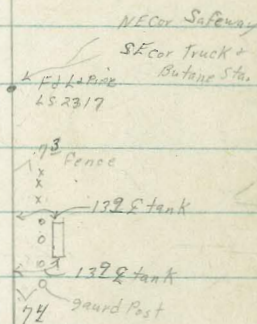 NE Cor Safeway
SE cor Truck +
Butane Sta.
Fd L+Pipe
LS 2317
73
fence
x
x
x
139 ₵ tank
139 ₵ tank
74
gaurd Post